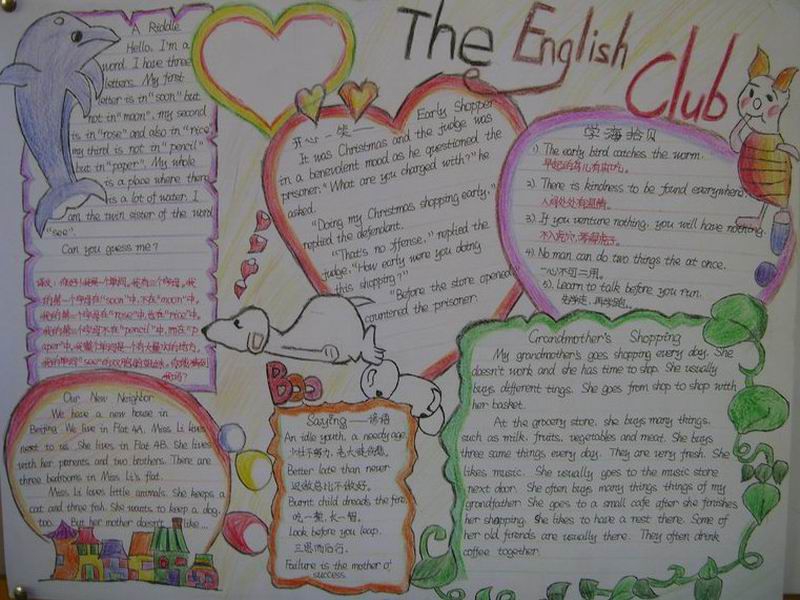 The English Club
A Riddle
Hello, I'm a
word. I have three
letters. My first
letter is in "soon" but
not in "moon". my second
is in "rose" and also in "rice"
my third is not in "pencil"
but in "paper". My whole
is a place where there
is a lot of water. I
am the twin sister of the word
"see".
Can you guess me?
开心一笑
Early Shopper
It was Christmas and the judge was
in a benevolent mood as he questioned the
prisoner. "What are you charged with?" he
asked.
"Doing my Christmas shopping early,"
replied the defendant.
"That's no offense," replied the
judge. "How early were you doing
this shopping?"
"Before the store opened,"
countered the prisoner.
学海拾贝
1) The early bird catches the worm.
早起的鸟儿有虫吃。
2). There is kindness to be found everywhere.
人间处处有温情。
3). If you venture nothing. you will have nothing.
不入虎穴,焉得虎子。
4). No man can do two things the at once.
一心不可二用。
5). Learn to talk before you run.
Our New Neighbor
We have a new house in
Beijing. We live in Flat 4A. Miss Li loves
next to us. She lives in Flat 4B. She lives
with her parents and two brothers. There are
three bedrooms in Miss Li's flat.
Miss Li loves little animals. She keeps a
cat and three fish. She wants to keep a dog,
too. But her mother doesn't like...
Boo
Saying——谚语
An idle youth, a needy age
少壮不努力,老大徒伤悲。
Better late than never
迟做总比不做好。
Burnt child dreads the fire
吃一堑,长一智。
Look before you leap.
三思而后行。
Failure is the mother of
success.
Grandmother's Shopping
My grandmother's goes shopping every day. She
doesn't work and she has time to shop. She usually
buys different tings. She goes from shop to shop with
her basket.
At the grocery store, she buys many things,
such as milk, fruits, vegetables and meat. She buys
three same things every day. They are very fresh. She
likes music. She usually goes to the music store
next door. She often buys many things things of my
grandfather. She goes to a small cafe after she finishes
her shopping. She likes to have a rest there. Some of
her old firends are usually there. They often drink
coffee together.